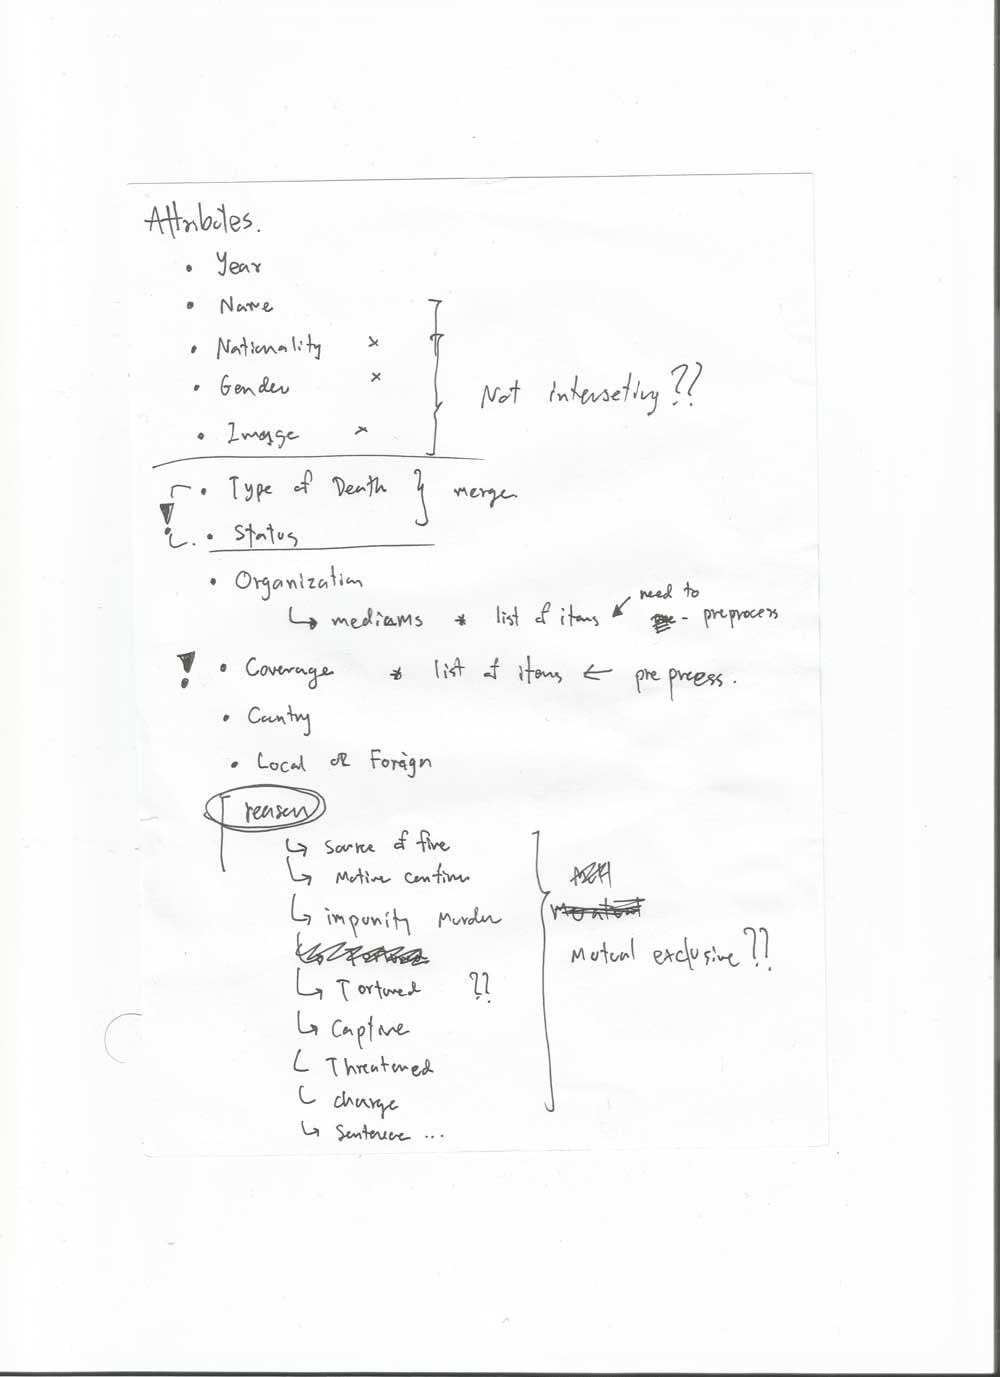 Attributes.
• Year
• Name
• Nationality ×
• Gender ×
• Image ×
Not interseting??
• Type of Death
merge
• Status
• Organization
↳ mediums * list of items ↙ need to
- preprocess
• Coverage * list of items ← preprocess.
• Country
• Local or Foreign
reason
↳ Source of fire
↳ Motive confirm
↳ impunity Murder
↳ Tortured ??
↳ Captive
↳ Threatened
↳ charge
↳ Sentence ...
Mutual exclusive??